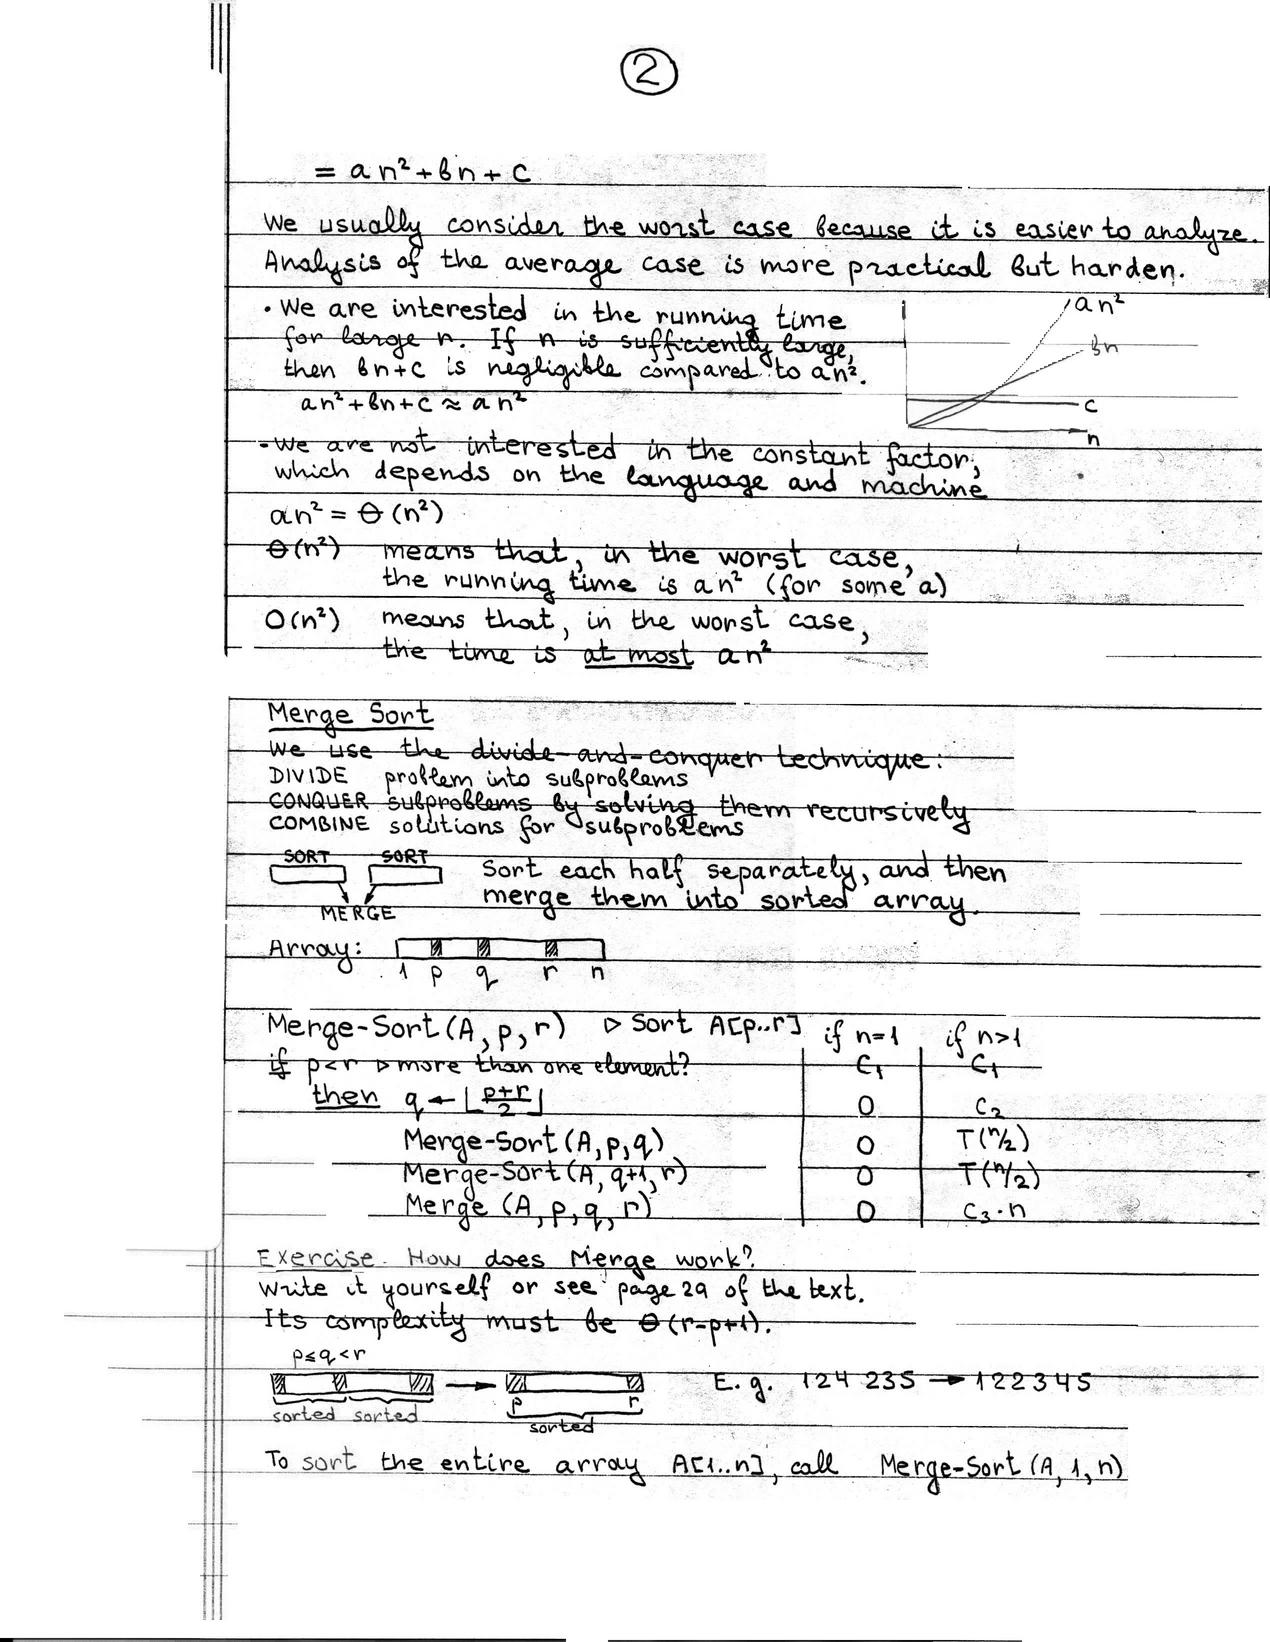 2
= an² + bn + c
We usually consider the worst case because it is easier to analyze.
Analysis of the average case is more practical but harden.
• We are interested in the running time
for large n. If n is sufficiently large,
then bn+c is negligible compared to an².
an² + bn + c ≈ an²
an²
bn
c
n
• We are not interested in the constant factor,
which depends on the language and machine
an² = Θ(n²)
Θ(n²) means that, in the worst case,
the running time is an² (for some a)
O(n²) means that, in the worst case,
the time is at most an²
Merge Sort
We use the divide-and-conquer technique:
DIVIDE problem into subproblems
CONQUER subproblems by solving them recursively
COMBINE solutions for subproblems
SORT SORT
MERGE
Sort each half separately, and then
merge them into sorted array.
Array:
1 p q r n
Merge-Sort(A, p, r) ▷ Sort A[p..r] if n=1 if n>1
if p<r ▷ more than one element? C₁ C₁
then q ← ⌊(p+r)/2⌋ 0 C₂
Merge-Sort(A, p, q) 0 T(n/2)
Merge-Sort(A, q+1, r) 0 T(n/2)
Merge (A, p, q, r) 0 C₃·n
Exercise. How does Merge work?
Write it yourself or see page 29 of the text.
Its complexity must be Θ(r-p+1).
p≤q<r
sorted sorted
p r
sorted
E.g. 124 235 → 122345
To sort the entire array A[1..n], call Merge-Sort(A, 1, n)